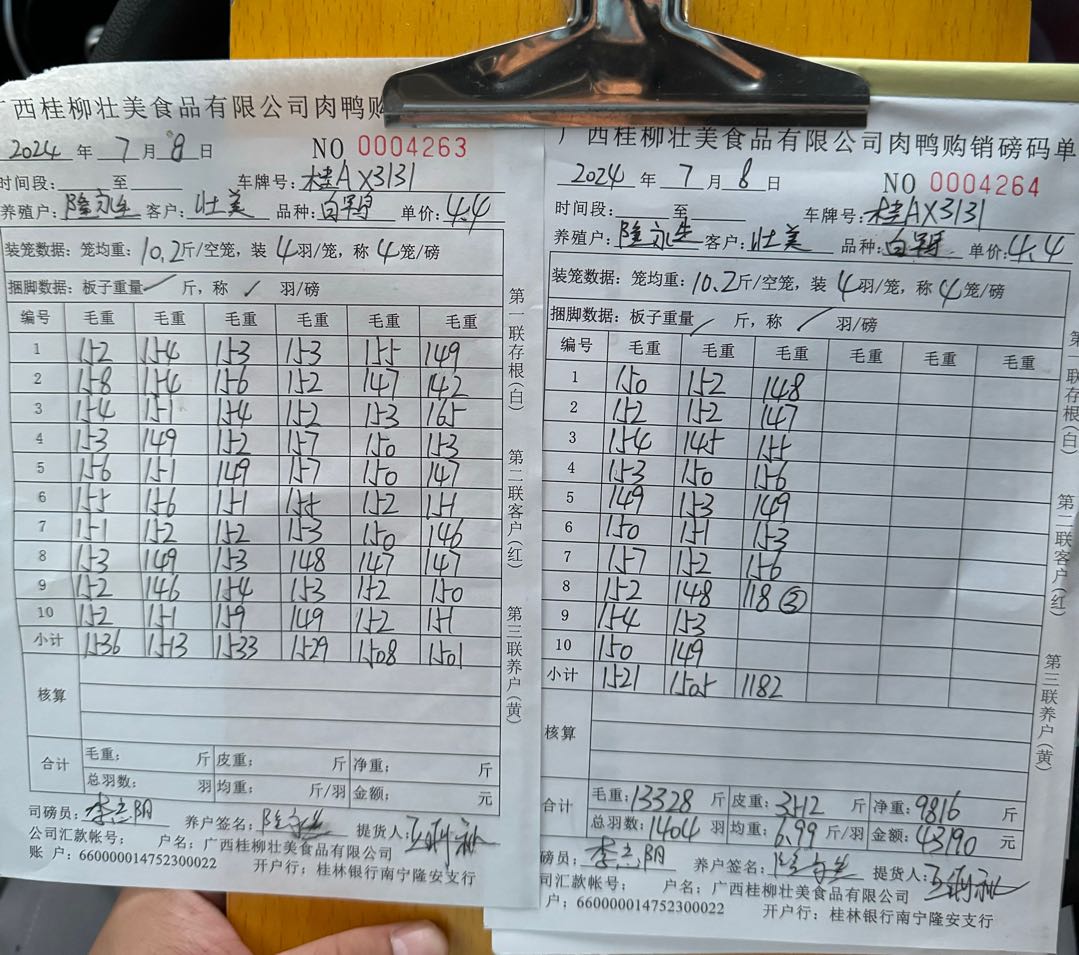 广西桂柳壮美食品有限公司肉鸭购
2024 年 7 月 8 日 NO 0004263
时间段: 至 车牌号: 桂AX3131
养殖户: 隆永生 客户: 壮美 品种: 白羽 单价: 4.4
装笼数据: 笼均重: 10.2斤/空笼, 装 4羽/笼, 称 4笼/磅
捆脚数据: 板子重量 / 斤, 称 / 羽/磅
编号 毛重 毛重 毛重 毛重 毛重 毛重
1 152 154 153 153 155 149
2 158 154 156 152 147 142
3 154 151 154 152 153 165
4 153 149 152 157 150 153
5 156 151 149 157 150 147
6 155 156 151 155 152 151
7 151 152 152 153 150 146
8 153 149 153 148 147 147
9 152 146 154 153 152 150
10 152 151 159 149 152 151
小计 1536 1513 1533 1529 1508 1501
核算
合计 毛重: 斤 皮重: 斤 净重: 斤
总羽数: 羽 均重: 斤/羽 金额: 元
司磅员: 李志阴 养户签名: 提货人:
公司汇款帐号: 户名: 广西桂柳壮美食品有限公司
账 户: 660000014752300022 开户行: 桂林银行南宁隆安支行
第一联存根(白)
第二联客户(红)
第三联养户(黄)
广西桂柳壮美食品有限公司肉鸭购销磅码单
2024 年 7 月 8 日 NO 0004264
时间段: 至 车牌号: 桂AX3131
养殖户: 隆永生 客户: 壮美 品种: 白羽 单价: 4.4
装笼数据: 笼均重: 10.2斤/空笼, 装 4羽/笼, 称 4笼/磅
捆脚数据: 板子重量 / 斤, 称 / 羽/磅
编号 毛重 毛重 毛重 毛重 毛重 毛重
1 150 152 148
2 152 152 147
3 154 145 155
4 153 150 156
5 149 153 149
6 150 151 153
7 157 152 156
8 152 148 118 ③
9 154 153
10 150 149
小计 1521 1505 1182
核算
合计 毛重: 13328 斤 皮重: 3512 斤 净重: 9816 斤
总羽数: 1404 羽 均重: 6.99 斤/羽 金额: 43190 元
磅员: 李志阴 养户签名: 提货人:
司汇款帐号: 户名: 广西桂柳壮美食品有限公司
户: 660000014752300022 开户行: 桂林银行南宁隆安支行
第一联存根(白)
第二联客户(红)
第三联养户(黄)